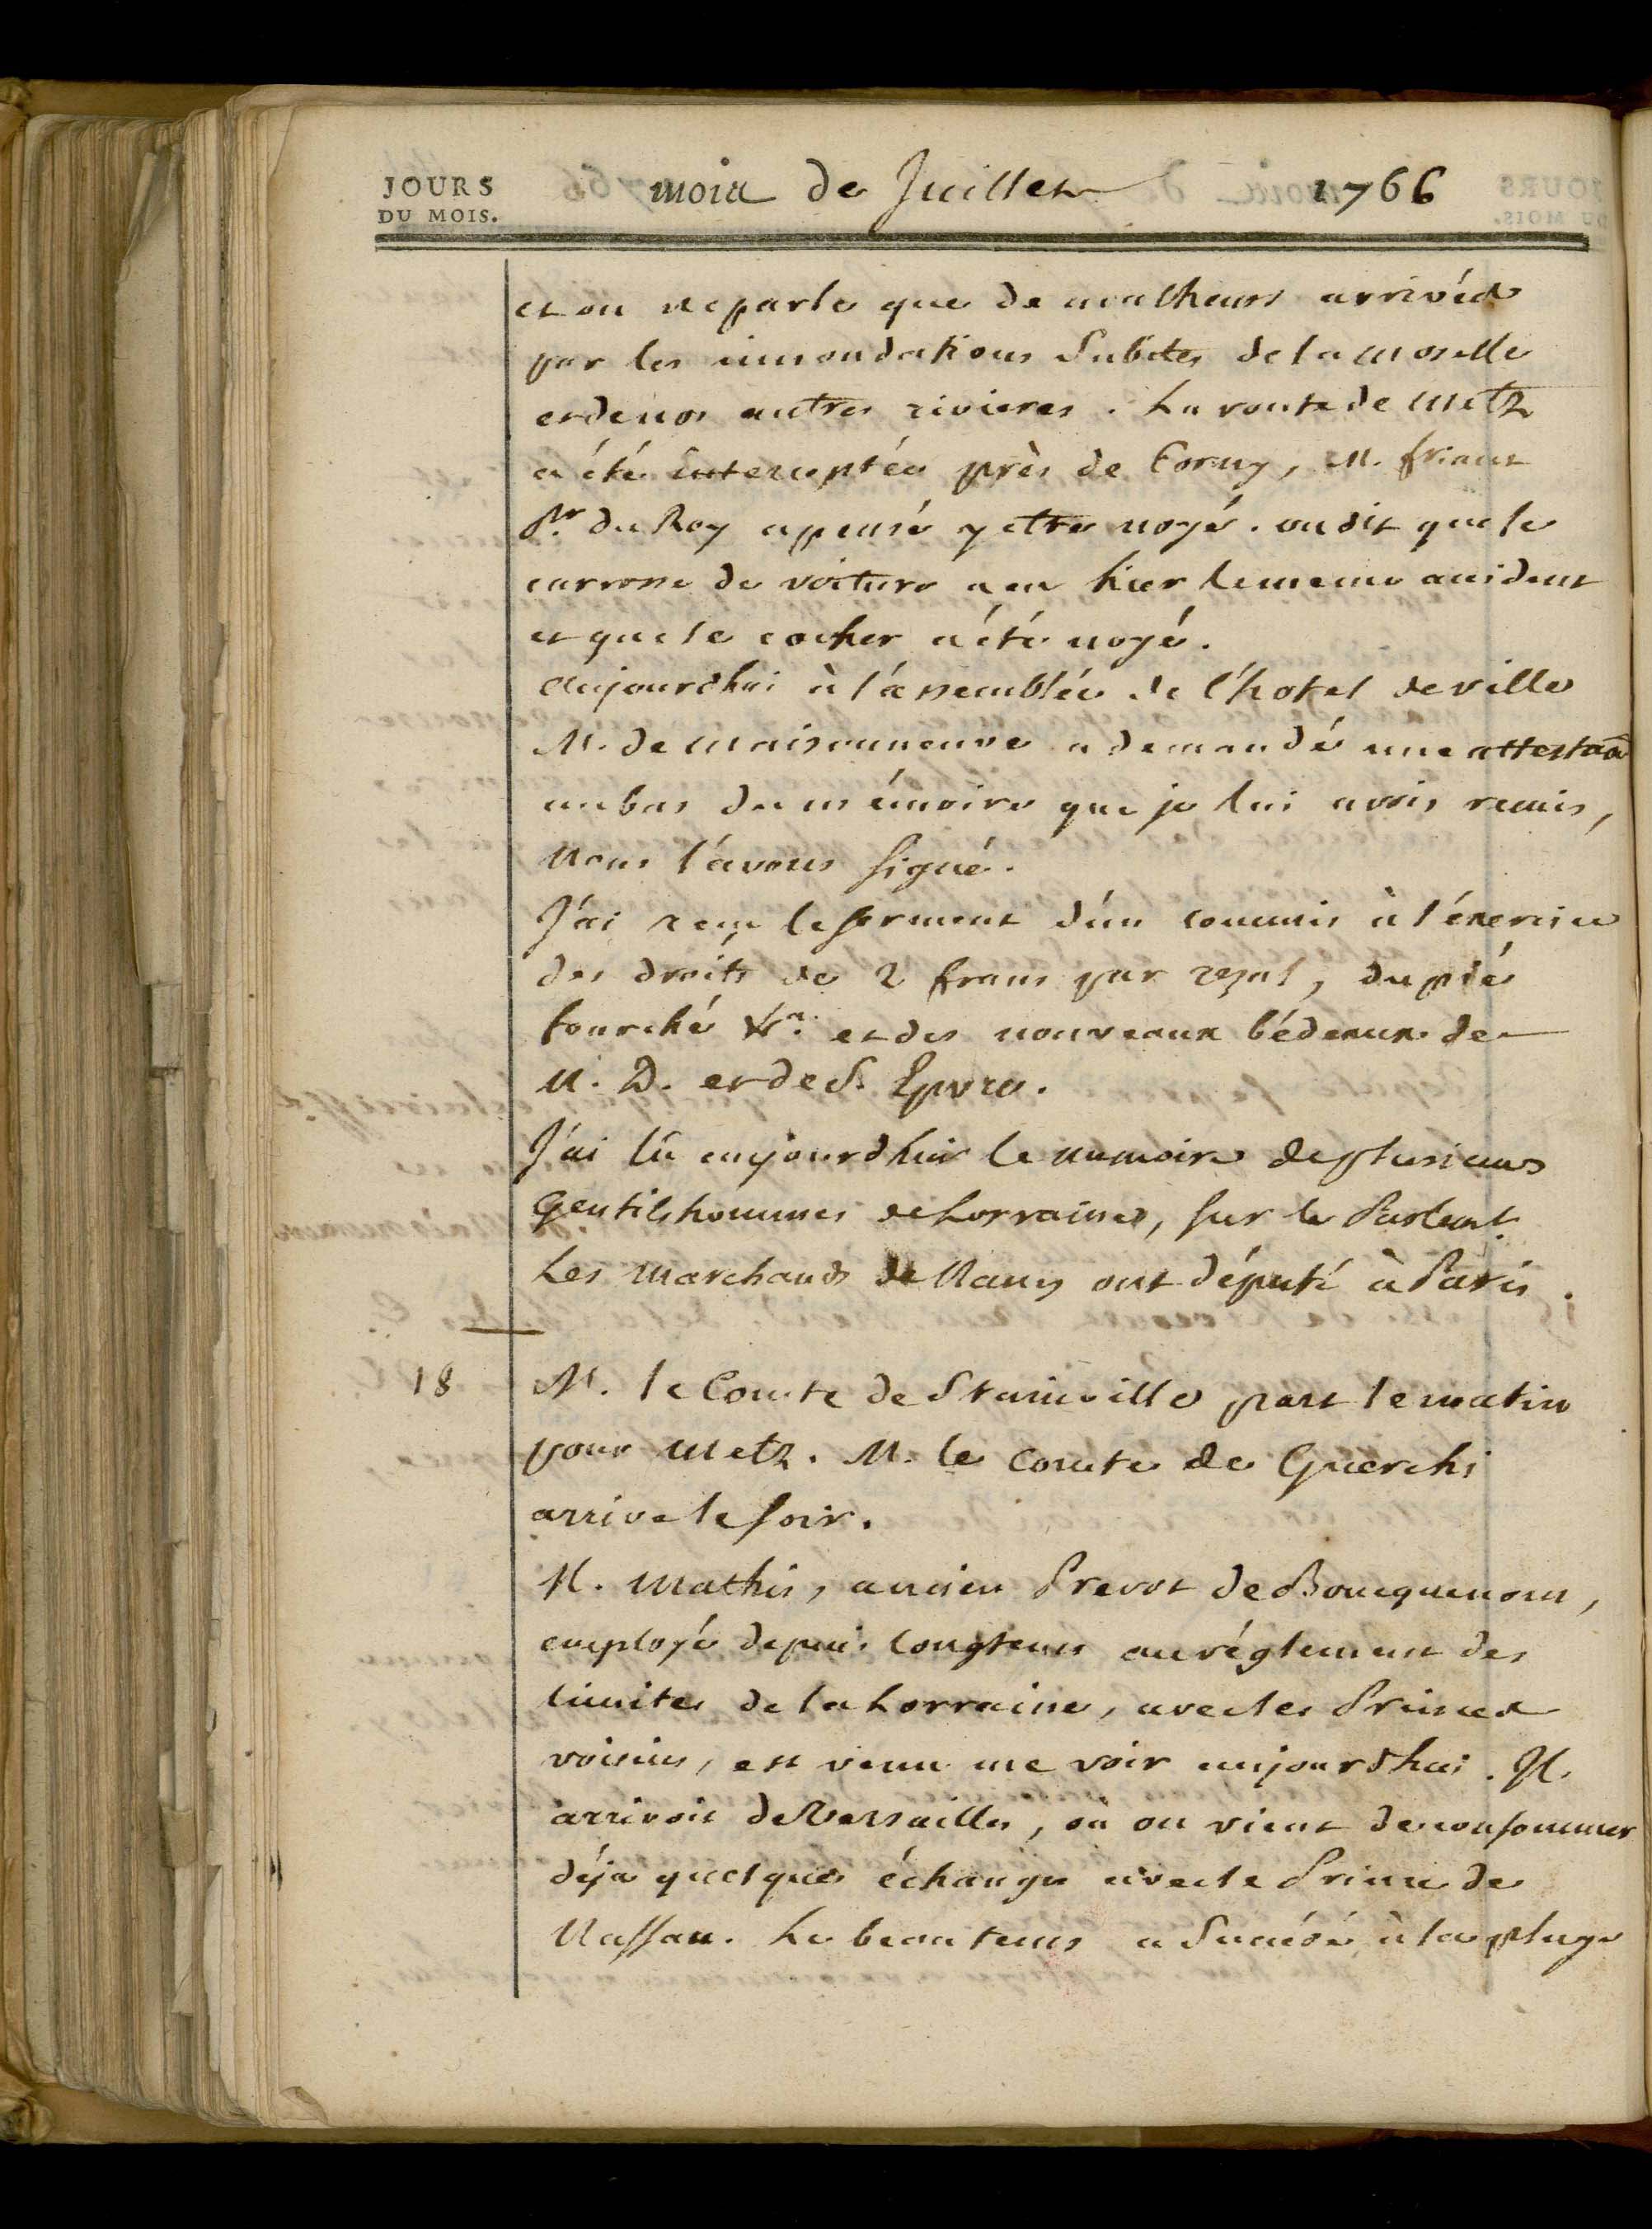 JOURS
DU MOIS.
mois de Juillet 1766
et on ne parle que de malheurs arrivés
par les innondations subites de la moselle
et de nos autres rivieres. La route de Metz
a été interceptée près de Corny, M. friant
Pr. du Roy a pensé y etre noyé. on dit que le
carrosse de voiture a eu hier le meme accident
et que le cocher a été noyé.
aujourdhui à l'assemblée de l'hotel de ville
M. de maisonneuve a demandé une attestaõn
au bas du mémoire que je lui avois remis,
Nous l'avons signé.
J'ai reçu le serment d'un commis à l'éxercice
des droits de 2 frans par rezal, du pié
fourché &a. et des nouveaux bédeaux de
N. D. et de S. Epvre.
J'ai lû aujourdhui le memoire de plusieurs
Gentilshommes de Lorraine, sur le Parlemt.
Les marchands de Nancy ont député à Paris.
18
M. le Comte de Stainville part le matin
pour Metz. M. le Comte de Guerchi
arrive le soir.
M. Mathis, ancien Prevot de Boucquenom,
employé depuis longtems au réglement des
limites de la Lorraine, avec les Princes
voisins, est venu me voir aujourdhui. Il
arrivoit de Versailles, où on vient de consommer
déja quelques échanges avec le Prince de
Nassau. Le beau tems a succédé à la pluye